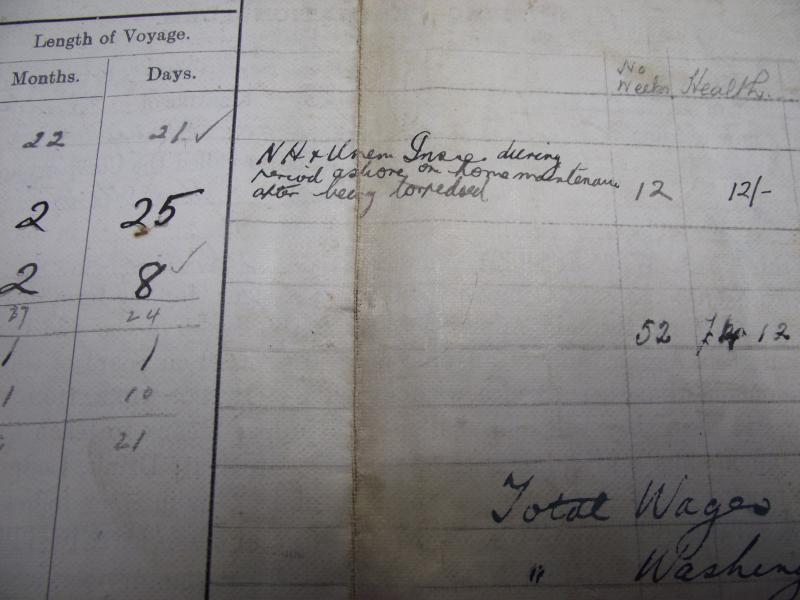 Length of Voyage.
Months. Days.
No
Weeks Health.
22 21 ✓
N H & Unem Insce. during
period ashore on home maintenance
after being torpedoed 12 12/-
2 25
2 8 ✓
24
52 12
1 1
1 10
21
Total Wages
" Washing